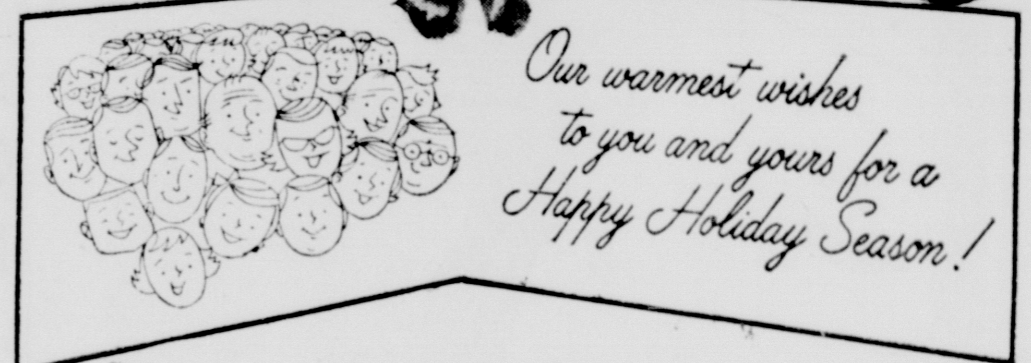 Our warmest wishes
to you and yours for a
Happy Holiday Season!